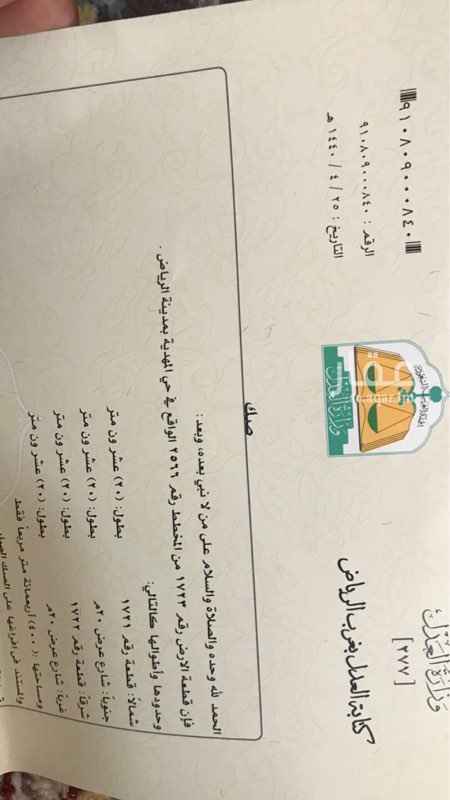 وزارة العدل
[٢٧٧]
كتابة العدل بغرب الرياض
٩١٠٨٠٩٠٠٠٨٤٠
الرقم : ٩١٠٨٠٩٠٠٠٨٤٠
التاريخ : ٢٥ / ٤ / ١٤٤٠ هـ
وزارة العدل
صك
الحمد لله وحده والصلاة والسلام على من لا نبي بعده، وبعد:
فإن قطعة الارض رقم ١٧٢٣ من المخطط رقم ٢٥٦٦ الواقع في حي المهدية بمدينة الرياض .
وحدودها وأطوالها كالتالي:
شمالا: قطعة رقم ١٧٢١ بطول: (٢٠) عشر ون متر
جنوبا: شارع عرض ٢٠م بطول: (٢٠) عشر ون متر
شرقا: قطعة رقم ١٧٢٤ بطول: (٢٠) عشر ون متر
غربا: شارع عرض ٢٠م بطول: (٢٠) عشر ون متر
ومساحتها :(٤٠٠) أربعمائة متر مربعا فقط
والمستند في افراغها على الصك الصادر